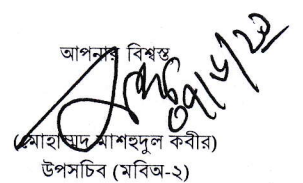 আপনার বিশ্বস্ত
(মোহাম্মদ মাশহুদুল কবীর)
উপসচিব (মবিঅ-২)